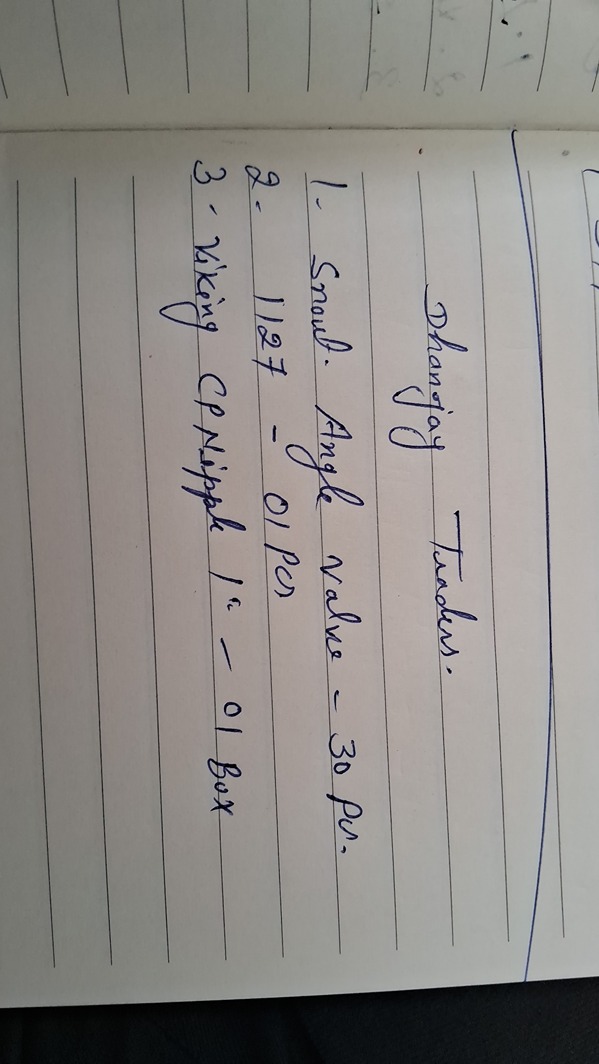 Dhanjay Traders.
1. Smart. Angle valve - 30 Pcs.
2. 1127 - 01 Pcs
3. Viking CP Nipple 1" - 01 Box